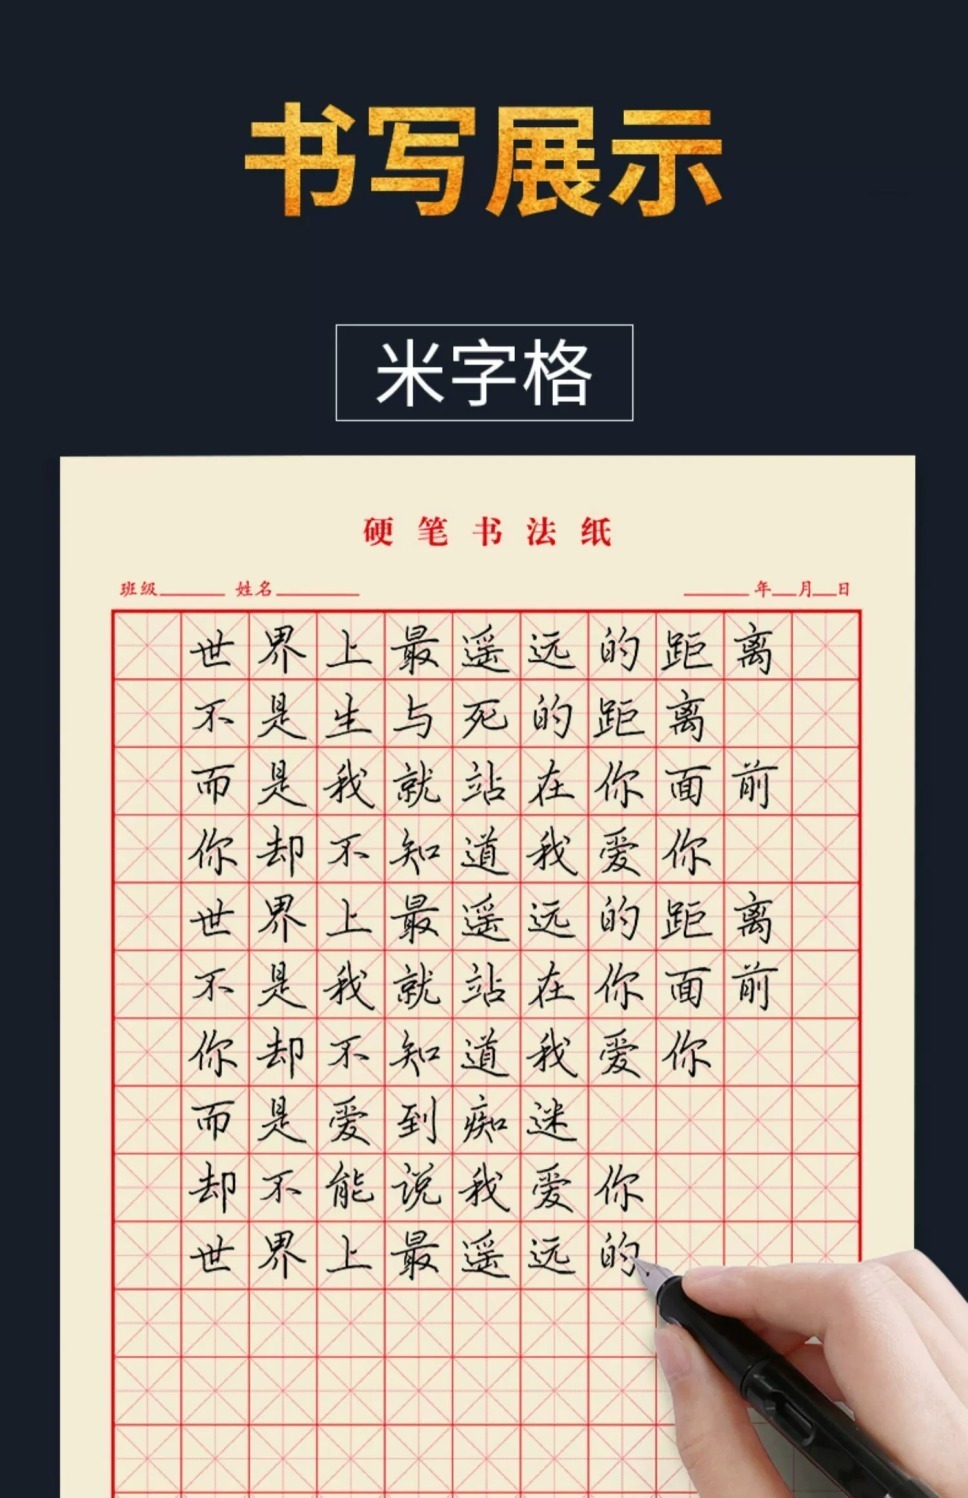 书写展示
米字格
硬笔书法纸
班级______ 姓名________ ______年__月__日
世界上最遥远的距离
不是生与死的距离
而是我就站在你面前
你却不知道我爱你
世界上最遥远的距离
不是我就站在你面前
你却不知道我爱你
而是爱到痴迷
却不能说我爱你
世界上最遥远的